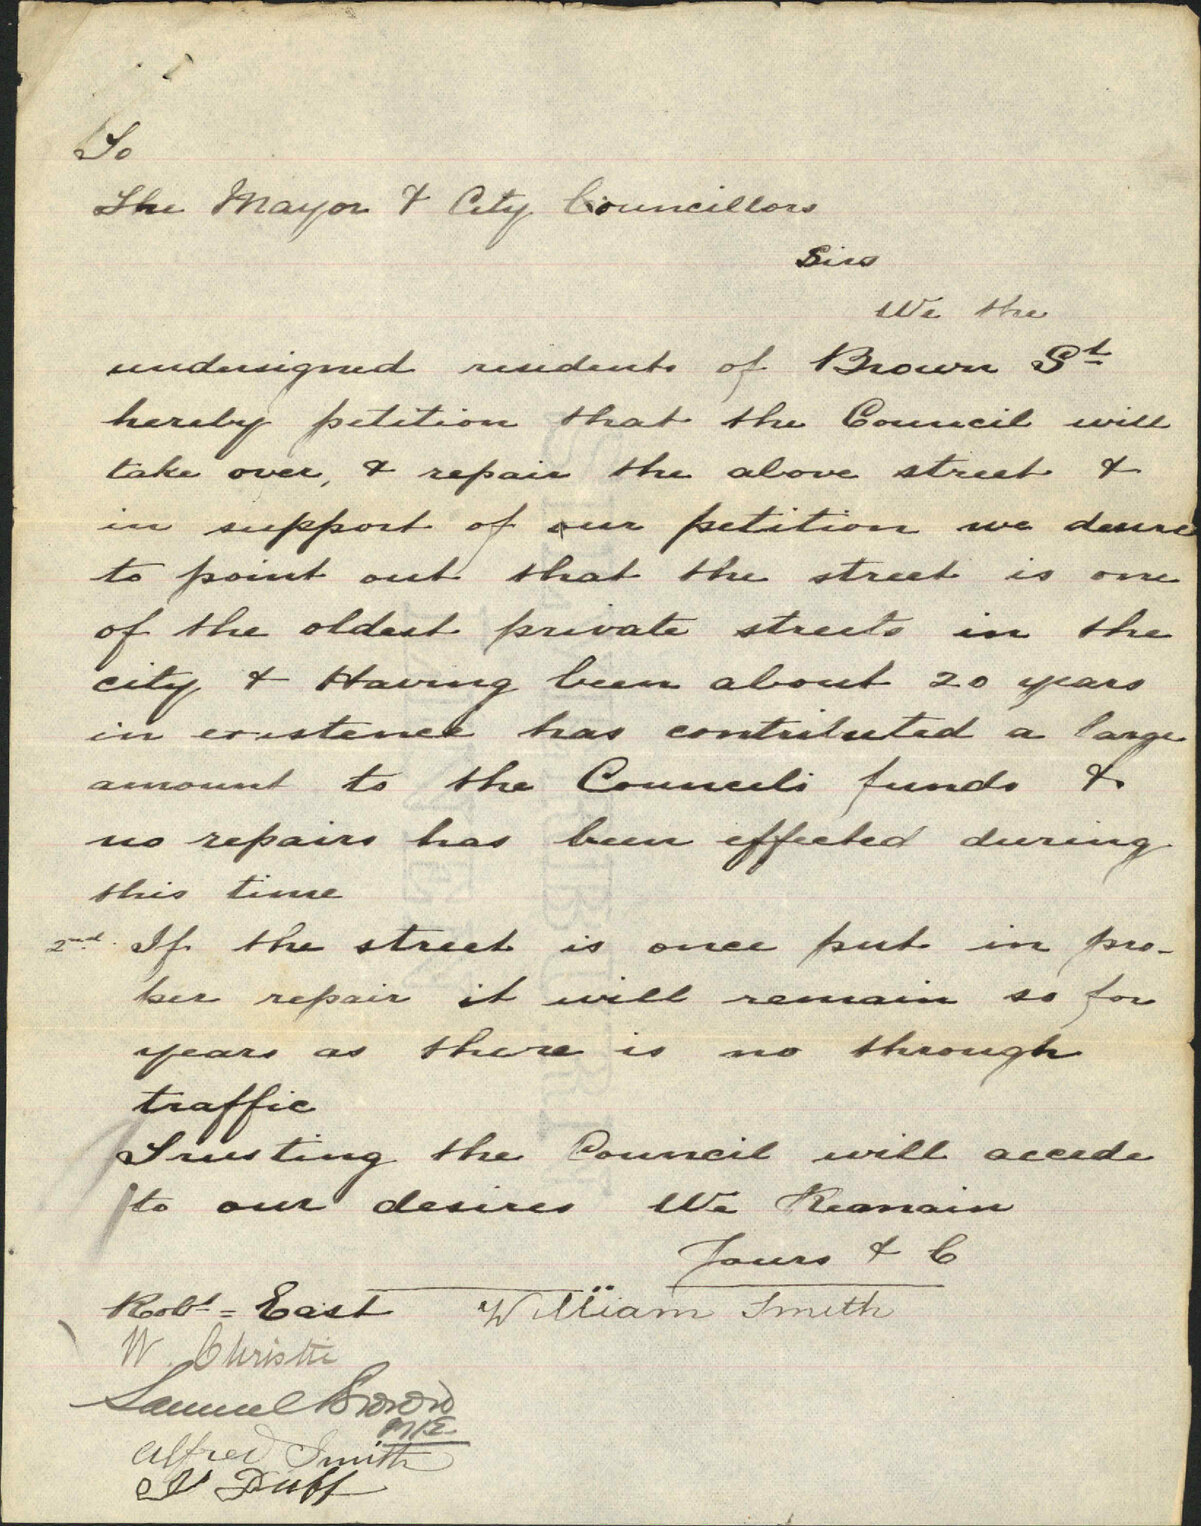 To
The Mayor & City Councillors
Sirs
We the
undersigned residents of Brown St
hereby petition that the Council will
take over, & repair the above street &
in support of our petition we desire
to point out that the street is one
of the oldest private streets in the
city & Having been about 20 years
in existence has contributed a large
amount to the Councils funds &
no repairs has been effected during
this time
2nd If the street is once put in pro-
per repair it will remain so for
years as there is no through
traffic
Trusting the Council will accede
to our desires We Remain
Yours & C
Robt = East William Smith
W. Christie
Samuel Brown
Alfred Smith
Duff